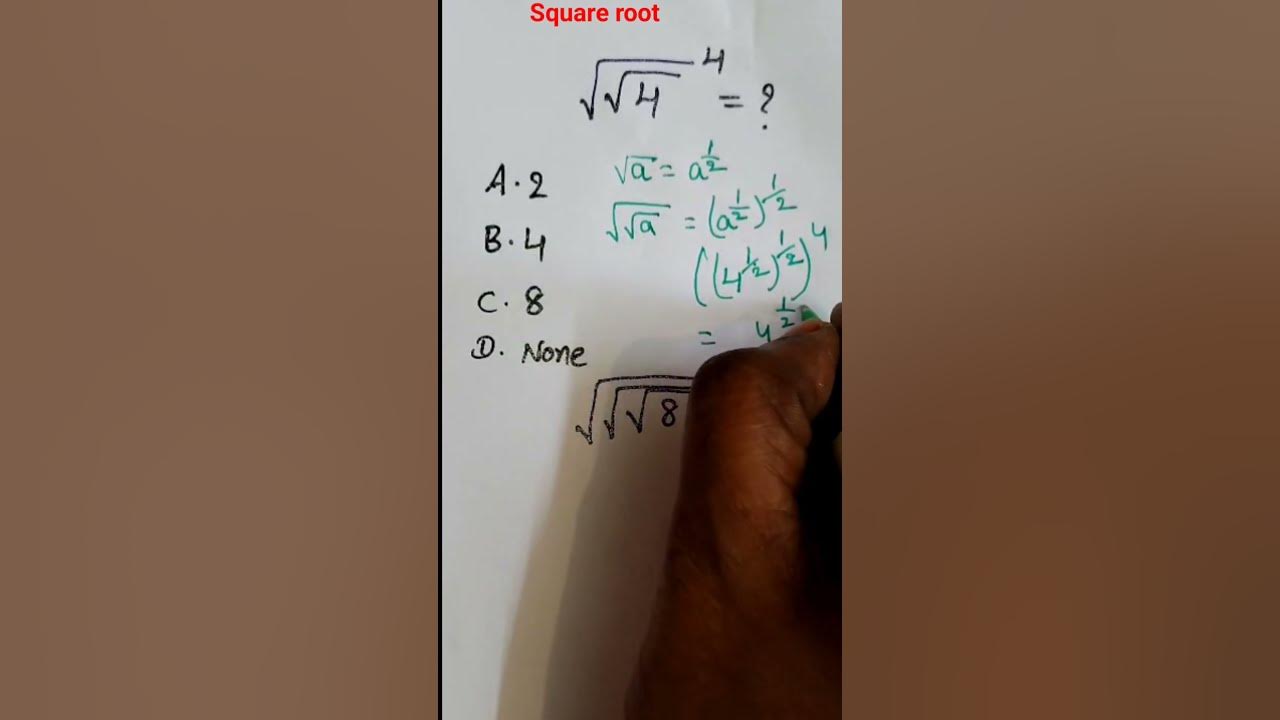 Square root
√√4 ⁴ = ?
A. 2
B. 4
C. 8
D. None
√a = a^1/2
√√a = (a^1/2)^1/2
((4^1/2)^1/2)^4
= 4^1/2
√√√8